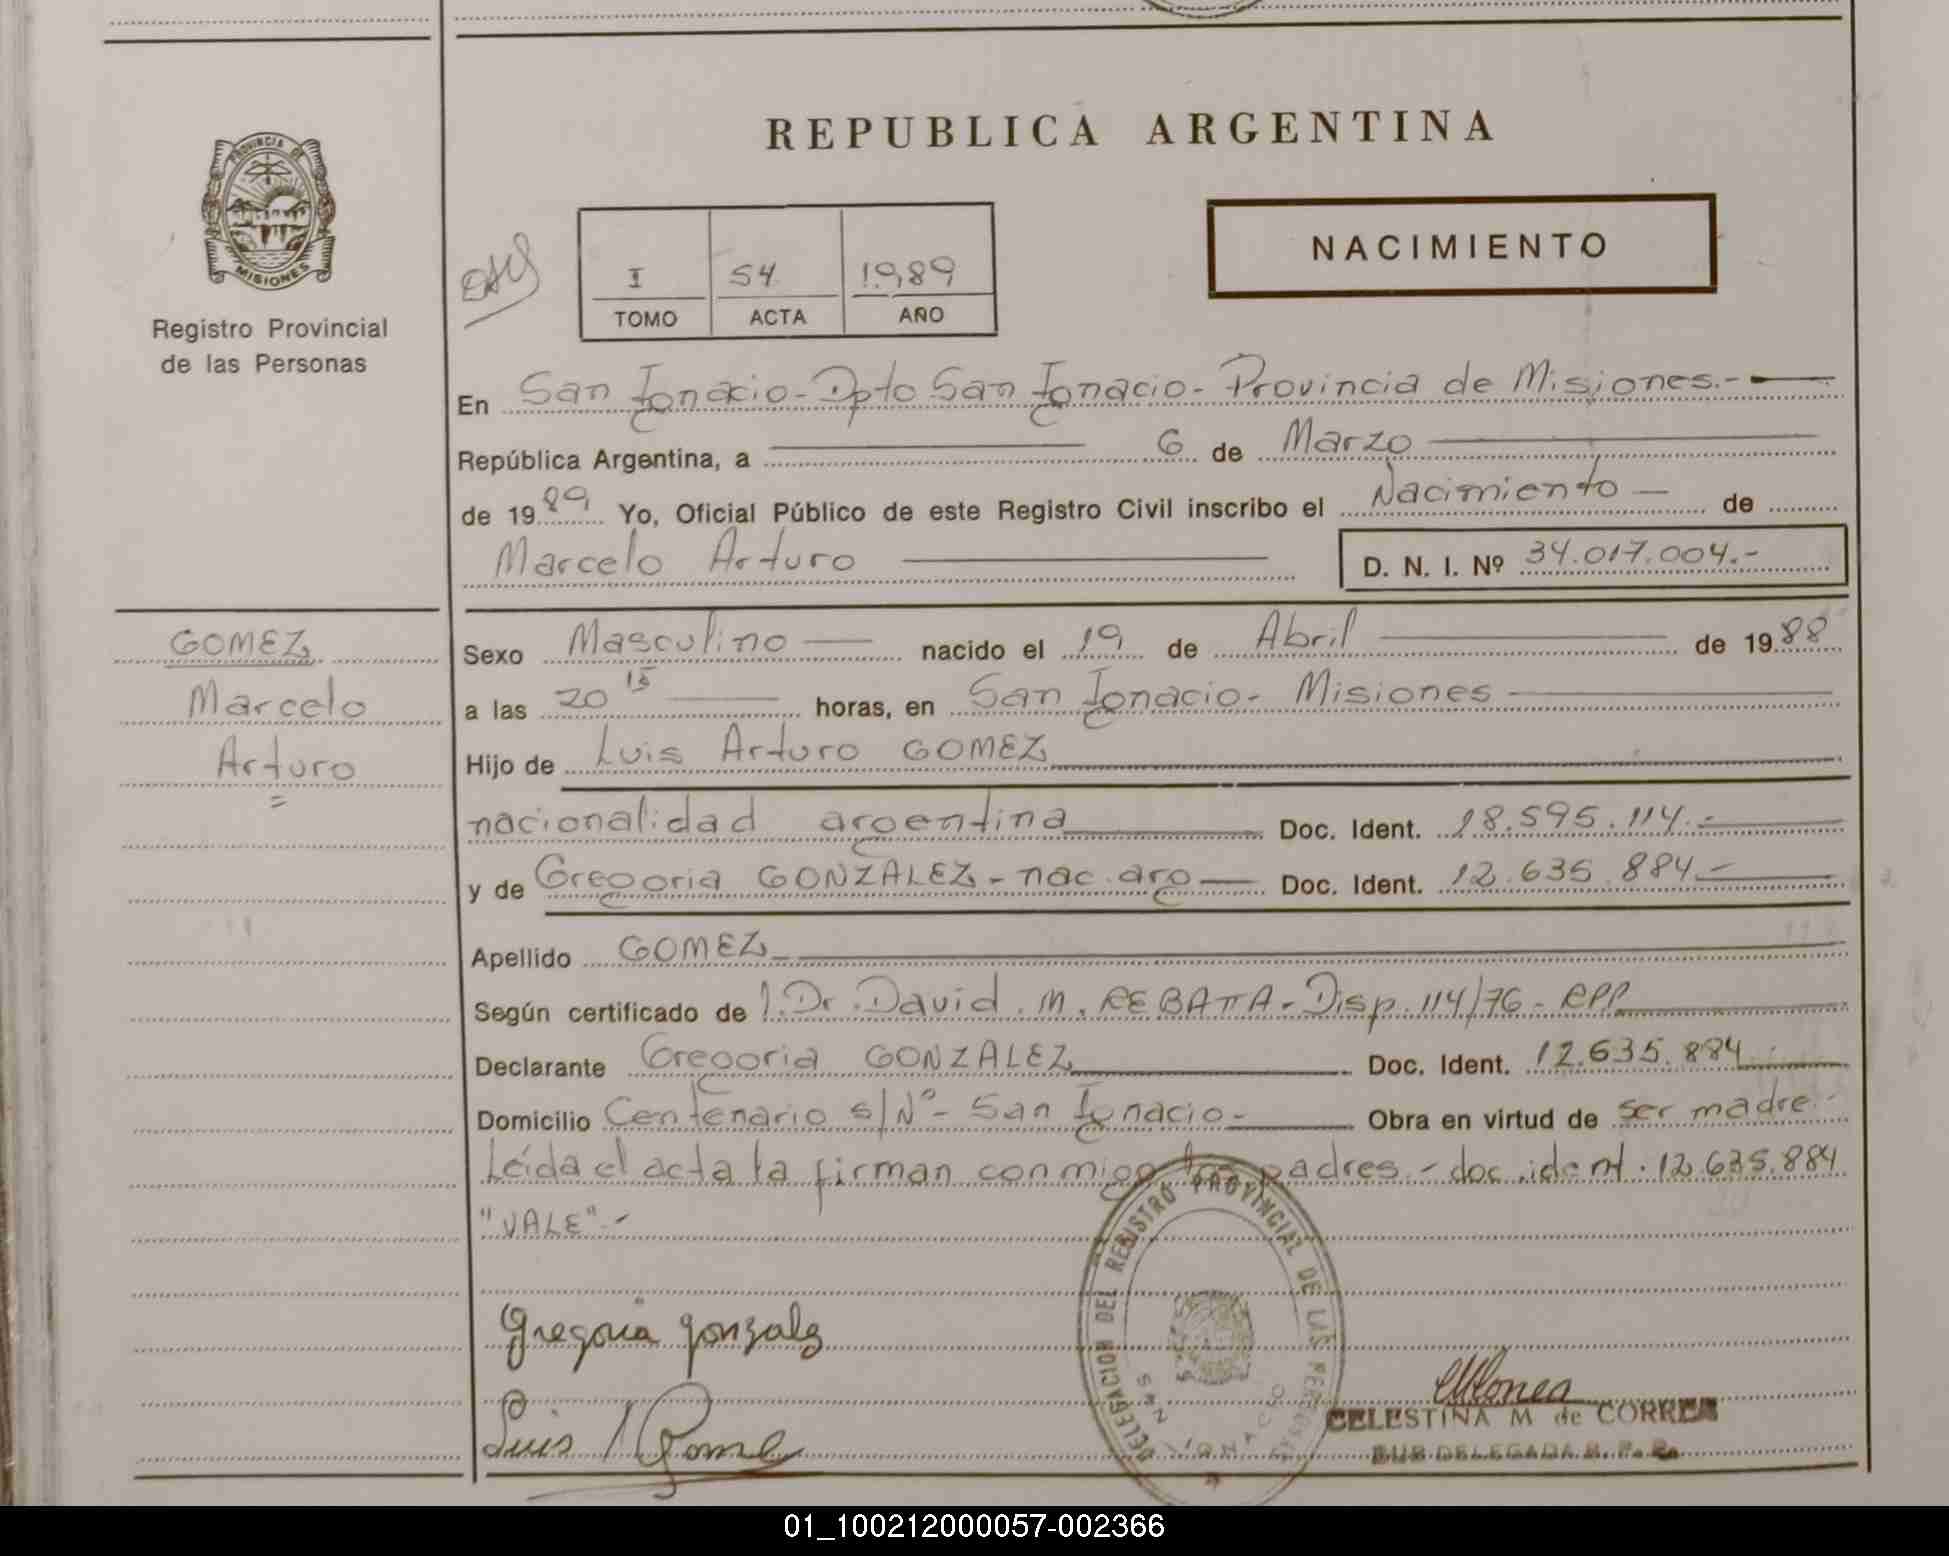 REPUBLICA ARGENTINA
PROVINCIA DE
MISIONES
Registro Provincial
de las Personas
I 54 1989
TOMO ACTA AÑO
NACIMIENTO
En San Ignacio - Dpto San Ignacio - Provincia de Misiones.-
República Argentina, a 6 de Marzo
de 1989 Yo, Oficial Público de este Registro Civil inscribo el Nacimiento de
Marcelo Arturo D. N. I. Nº 34.017.004.-
GOMEZ
Marcelo
Arturo
=
Sexo Masculino nacido el 19 de Abril de 1988
a las 20 15 horas, en San Ignacio - Misiones
Hijo de Luis Arturo GOMEZ
nacionalidad argentina Doc. Ident. 18.595.114.-
y de Gregoria GONZALEZ - nac. arg Doc. Ident. 12.635.884.-
Apellido GOMEZ
Según certificado de Dr. David M. REBATTA - Disp. 114/76 - RPP
Declarante Gregoria GONZALEZ Doc. Ident. 12.635.884
Domicilio Centenario s/Nº - San Ignacio - Obra en virtud de ser madre.-
Leída el acta la firman conmigo los padres.- doc. ident. 12.635.884
"VALE".-
DELEGACION DEL REGISTRO PROVINCIAL DE LAS PERSONAS
SAN IGNACIO
Gregoria Gonzalez
Luis A Gomez
CELESTINA M de CORREA
SUB DELEGADA R. P. P.
01_100212000057-002366